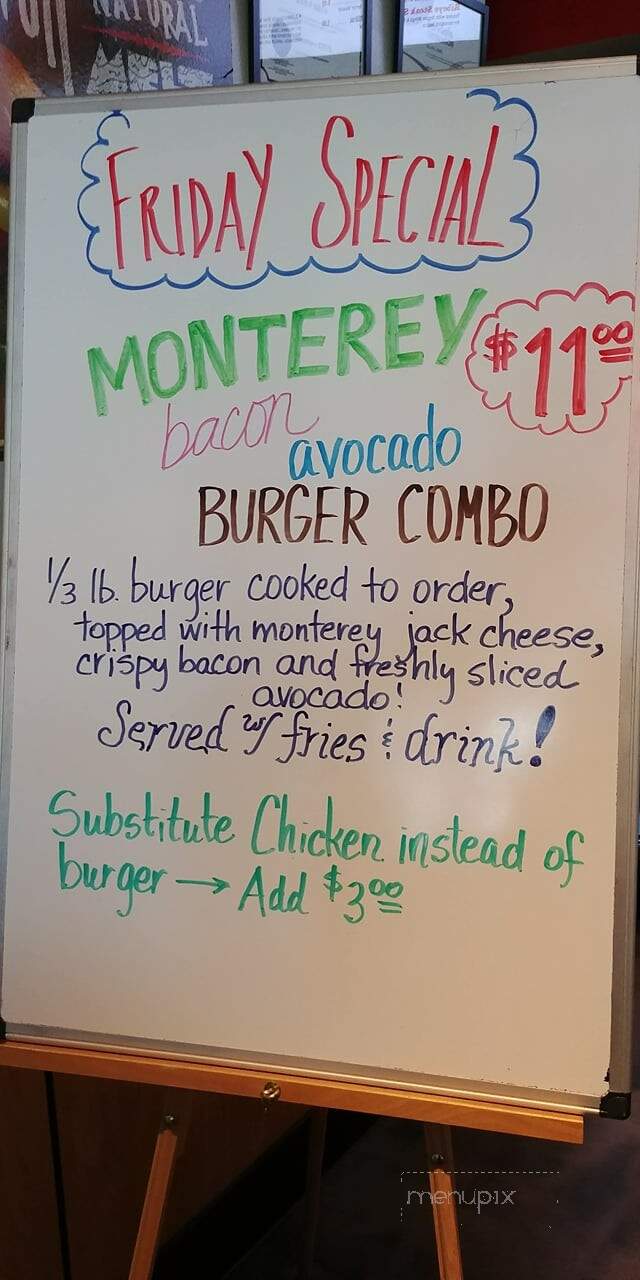 NATURAL
FRIDAY SPECIAL
MONTEREY $11.00
bacon
avocado
BURGER COMBO
1/3 lb. burger cooked to order,
topped with monterey jack cheese,
crispy bacon and freshly sliced
avocado!
Served w/ fries & drink!
Substitute Chicken instead of
burger → Add $3.00
menupix